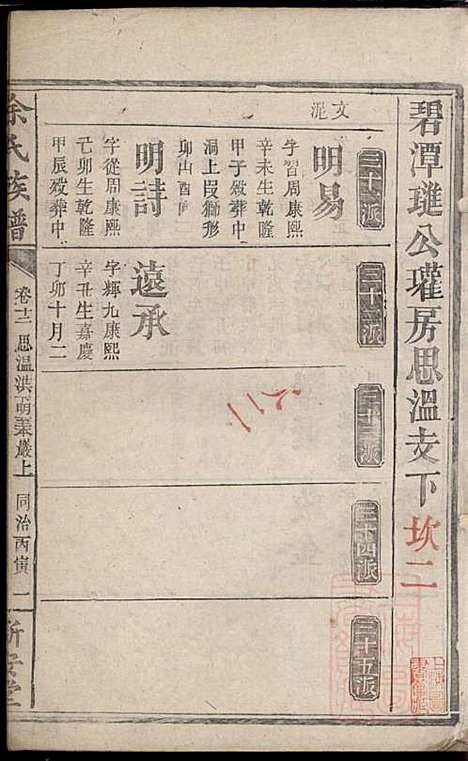 碧潭璡公瓘房思溫支下 坎二
三十一派
三十二派
三十三派
三十四派
三十五派
文
明易
字習周康熙
辛未生乾隆
甲子歿葬中
洞上㟁獅形
卯山酉
明詩
字從周康熙
己卯生乾隆
甲辰歿葬中
遠承
字輝九康熙
辛丑生嘉慶
丁卯十月二
余氏族譜
卷十二 思溫洪
上
同治丙寅
二
新安堂